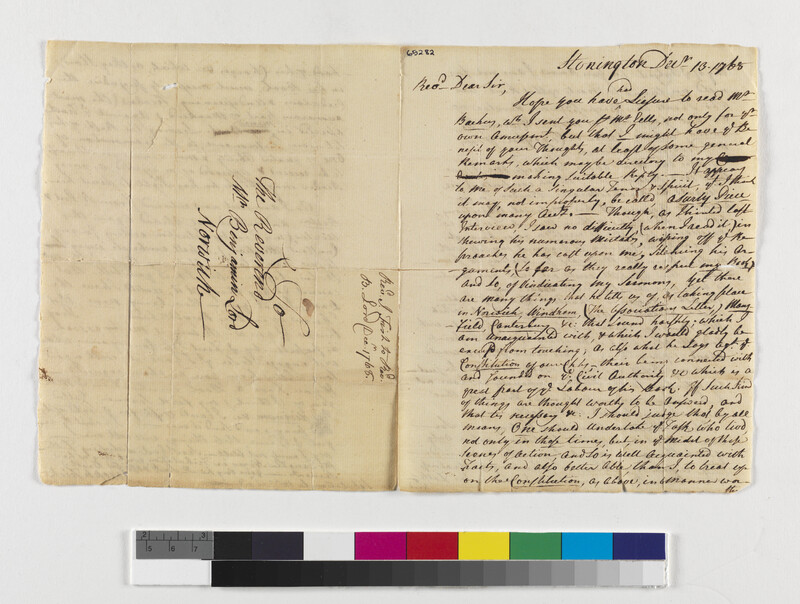 To
The Reverend
Mr. Benjamin Lord
Norwich
Revd. J. Fish to Revd
B. Lord Dec. 1768.
68282
Stonington Decr. 13. 1768
Revd. Dear Sir,
Hope you have had Leisure to read Mr.
Backus, wh. I sent you pr Mr. Gells, not only for yr.
own Amusemt, but that I might have ye Be-
nefit of your Thoughts, at least by some general
Remarks, which may be directory to my
making Suitable Reply. — It appears
to me of such a Singular Tenor & Spirit, yt I think
it may, not improperly, be call'd, a surly Piece
upon many Acts. — Though, as I hinted last
Interview, I saw no difficulty, (when I read it) in
shewing his numerous Mistakes, wiping off ye Re-
proaches he has cast upon me, & his Ar-
guments, (so far as they really respect my Book)
and so, of Vindicating my Sermons, Yet there
are many things that he tells us of, as taking place
in Norwich, Windham (the Association Letter,) Mans-
field, Canterbury &c: that sound harshly; which I
am Unacquainted with, & which I would gladly be
excused from touching; as also what he Says agt. ye
Constitution of our Chhs. — their being connected with
and founded on ye Civil Authority &c which is a
great part of ye Labour of his Book. If such kind
of things are thought worthy to be answered, and
that tis necessary &c. I should judge that by all
means, One should undertake ye Task, who lived
not only in those times, but, in ye midst of those
Scenes of Action, and so is well Acquainted with
Facts, and also better able than I, to treat up-
on that Constitution, as above, in a Manner wor-
th